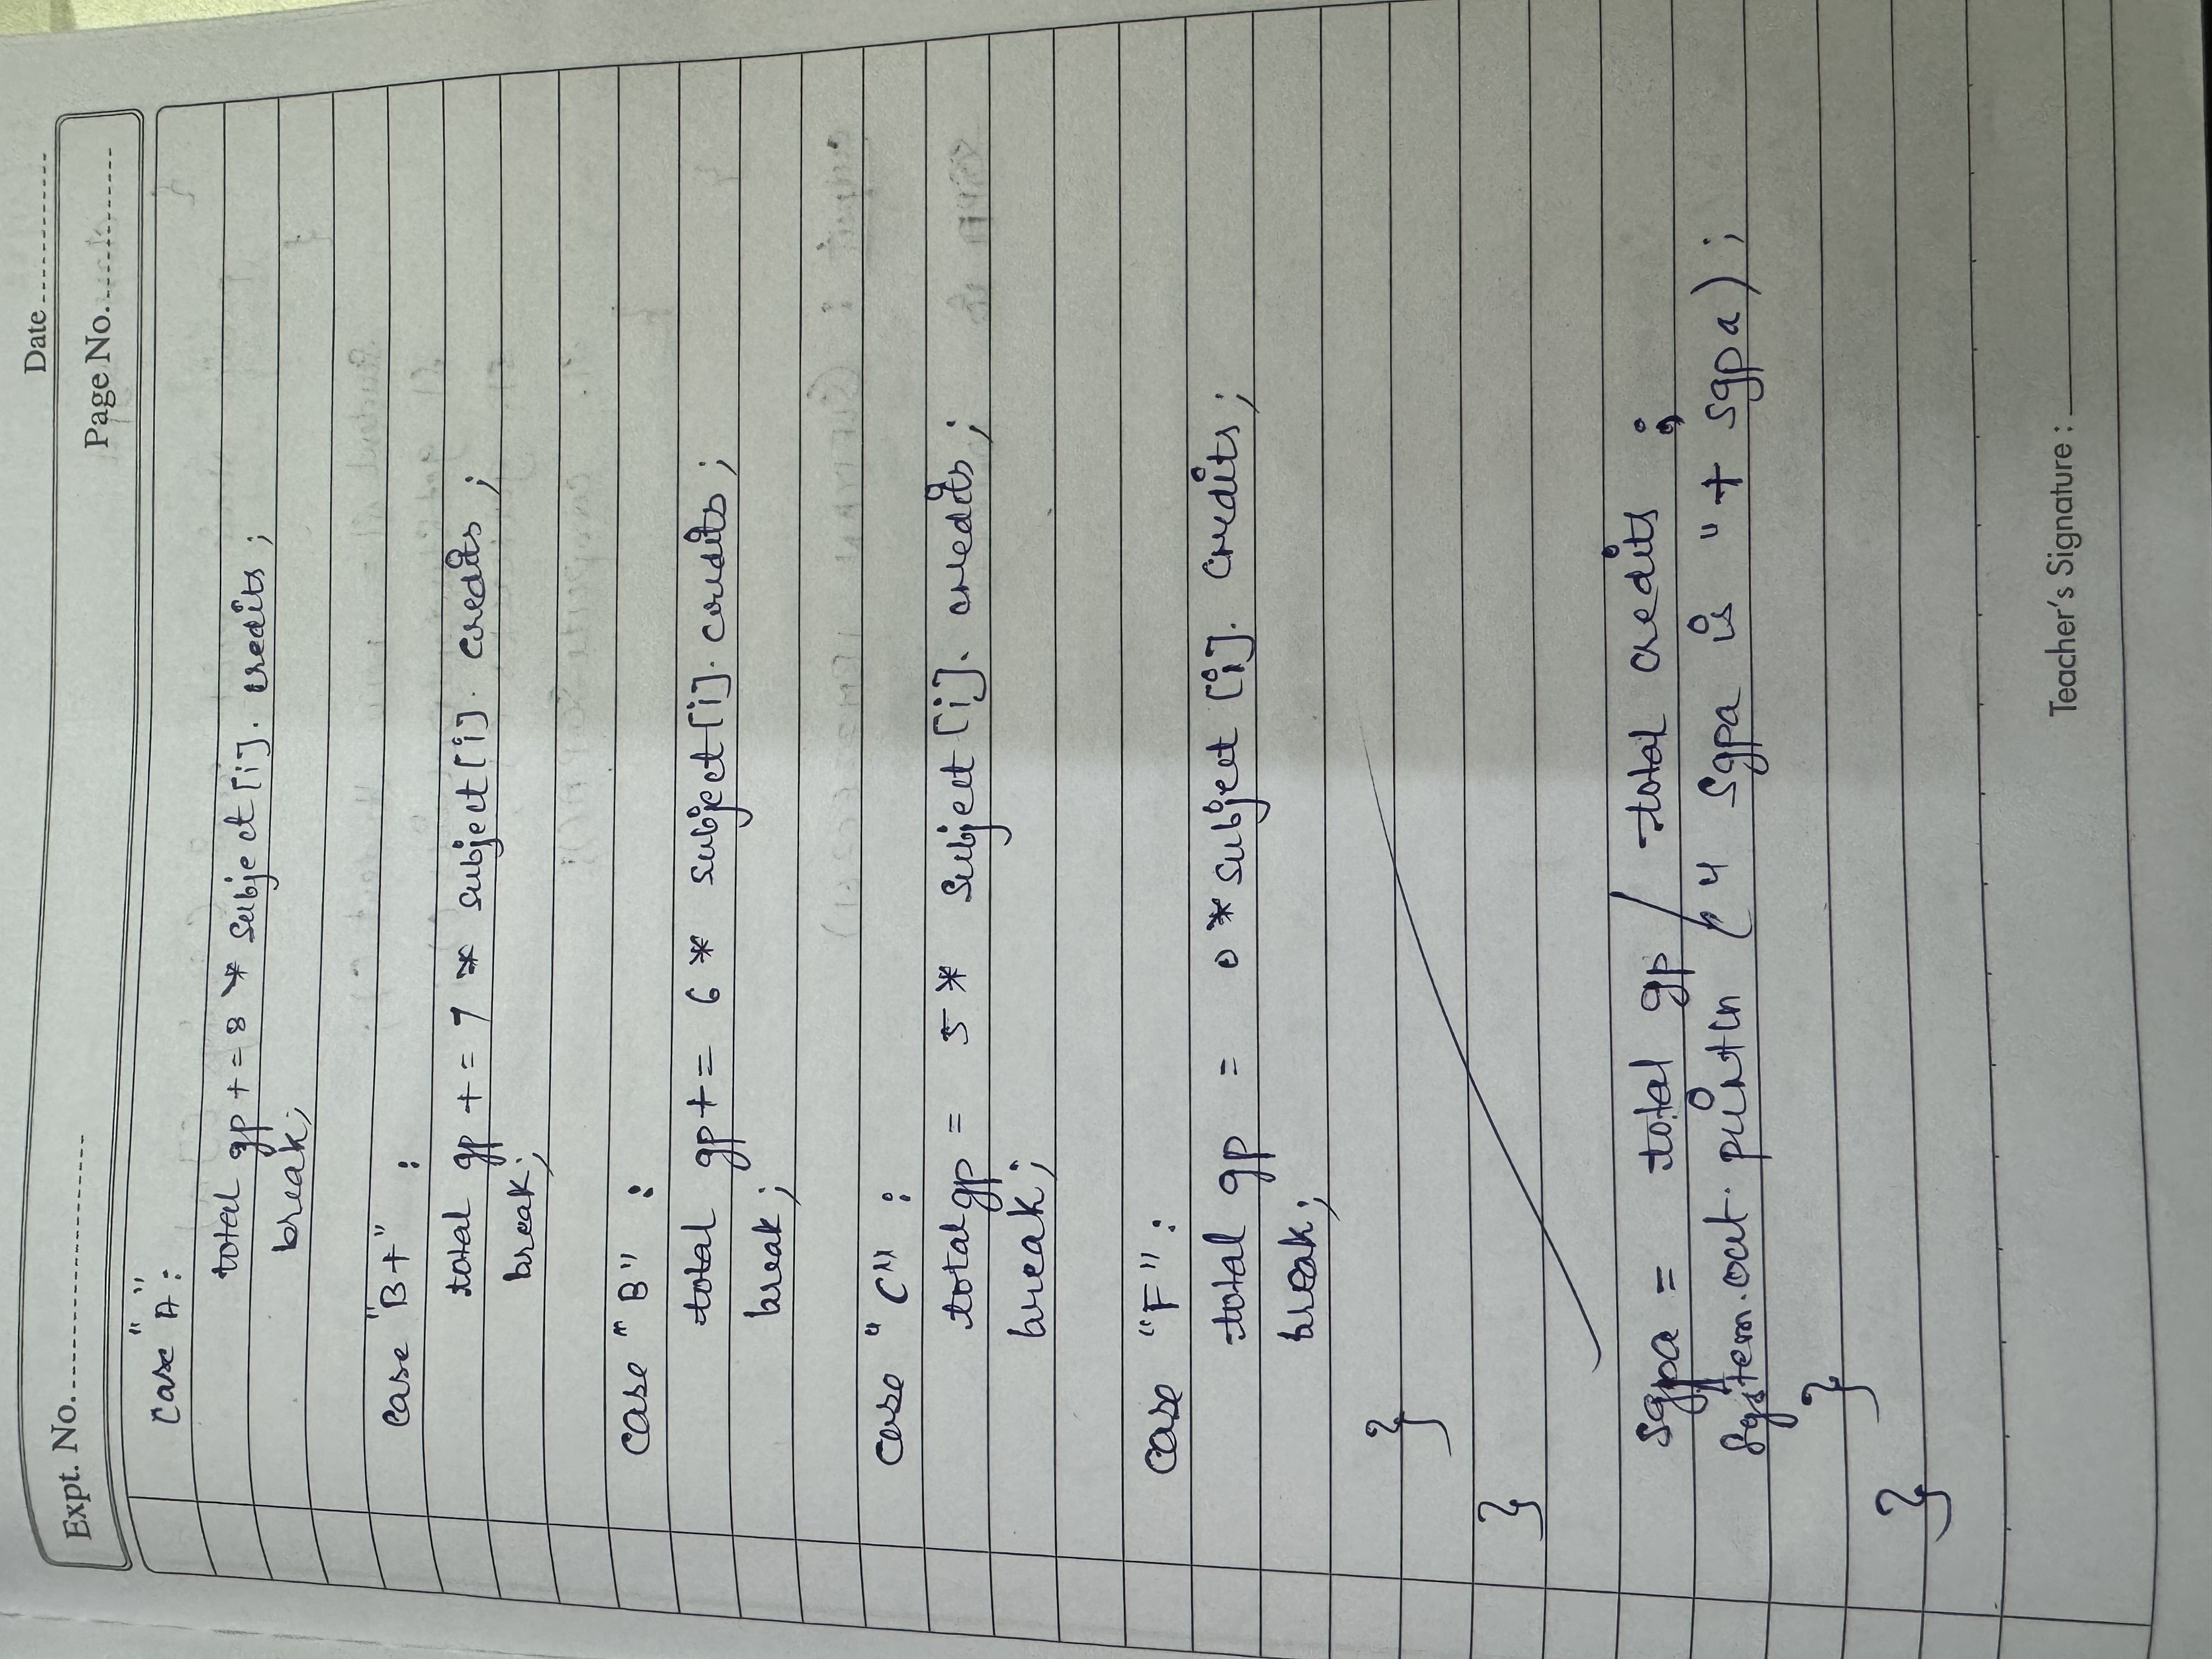 Date
Expt. No.
Page No.
Case "A":
total gp += 8 * subject[i]. credits;
break;
Case "B+" :
total gp += 7 * subject[i]. credits;
break;
case "B" :
total gp += 6 * subject[i]. credits;
break;
case "C" :
totalgp = 5 * subject[i]. credits;
break;
case "F":
total gp = 0 * subject [i]. credits;
break;
}
}
sgpa = total gp / total credits ;
System.out. println (" Sgpa is "+ sgpa);
}
}
Teacher's Signature :